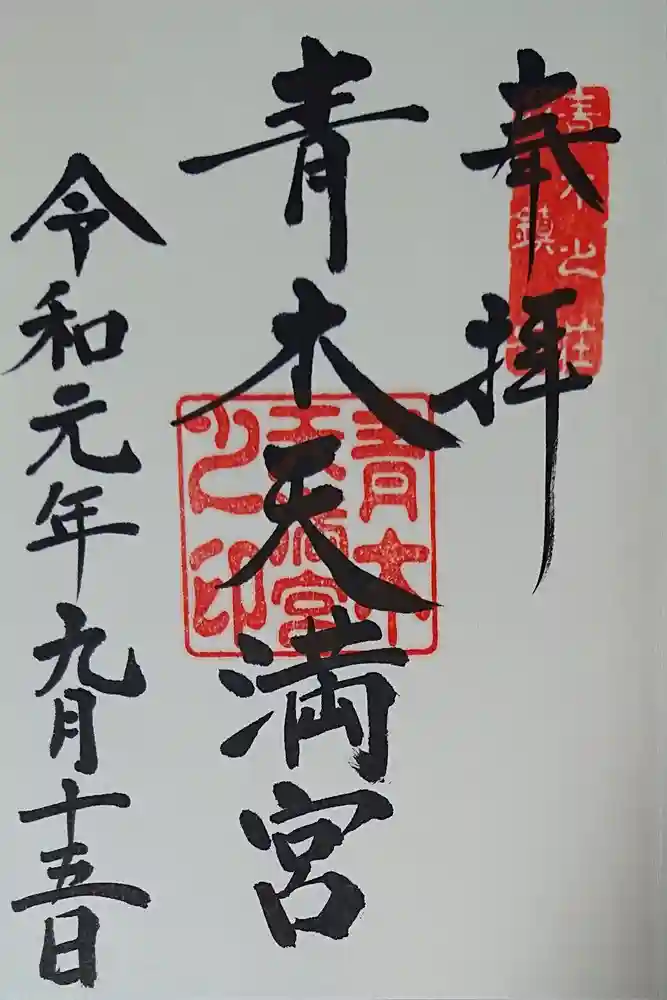 奉拝
青木之荘
鎮
青木天満宮
青木
天満宮
之印
令和元年九月十五日